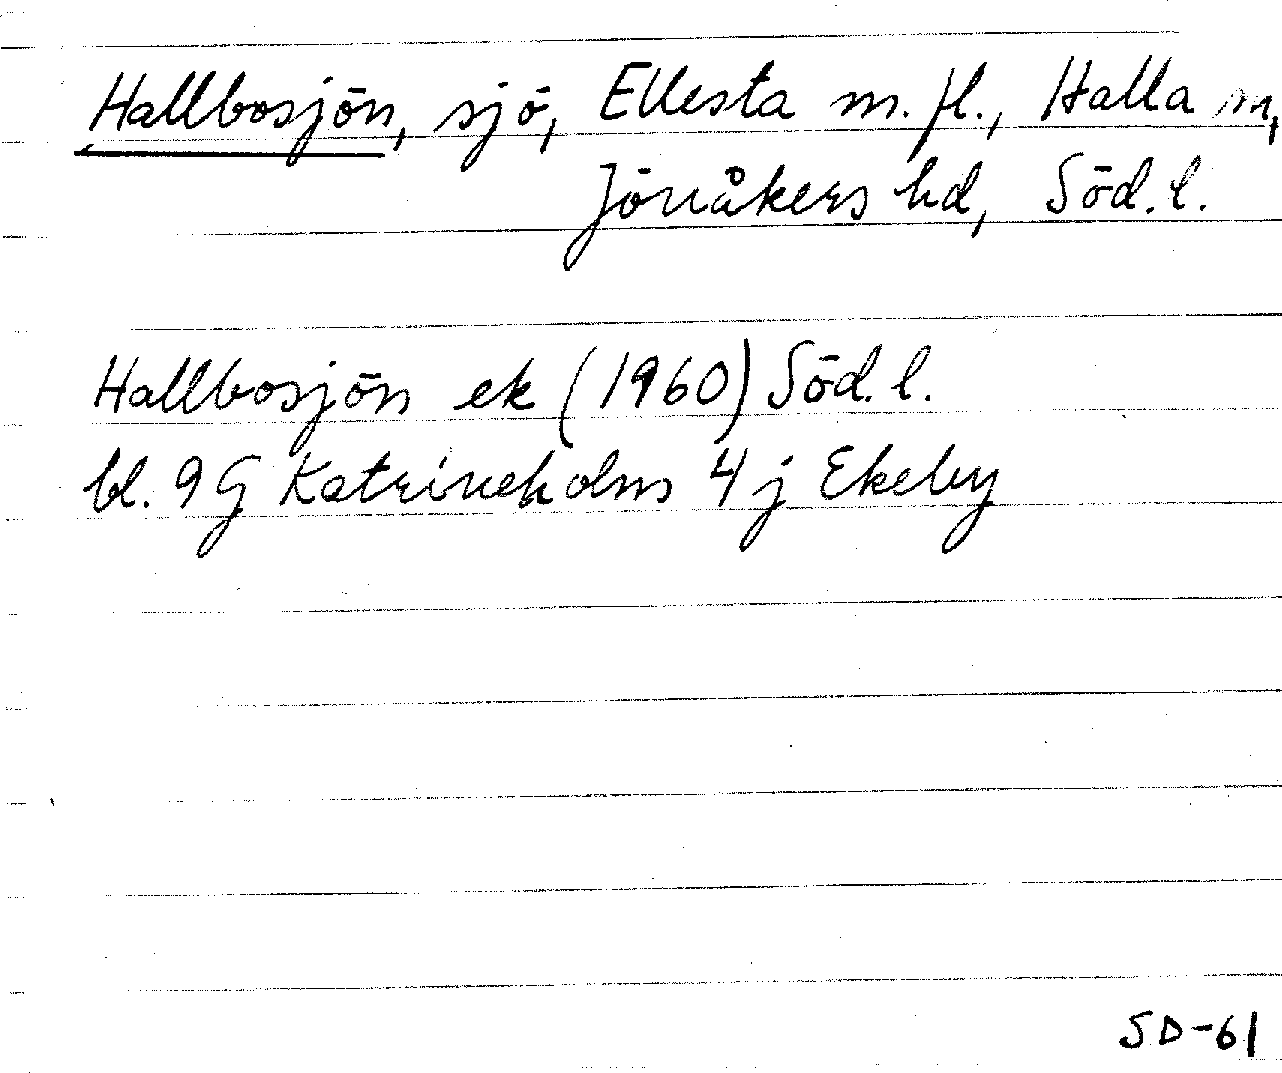 Hallbosjön, sjö, Ellesta m. fl., Halla sn,
Jönåkers hd, Söd. l.
Hallbosjön ek (1960) Söd. l.
bl. 9 G Katrineholms 4 j Ekeby
SD-61